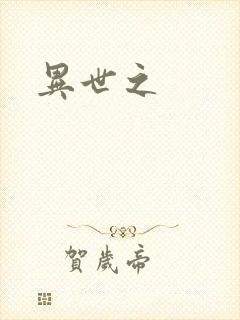 異世之
賀歲帝